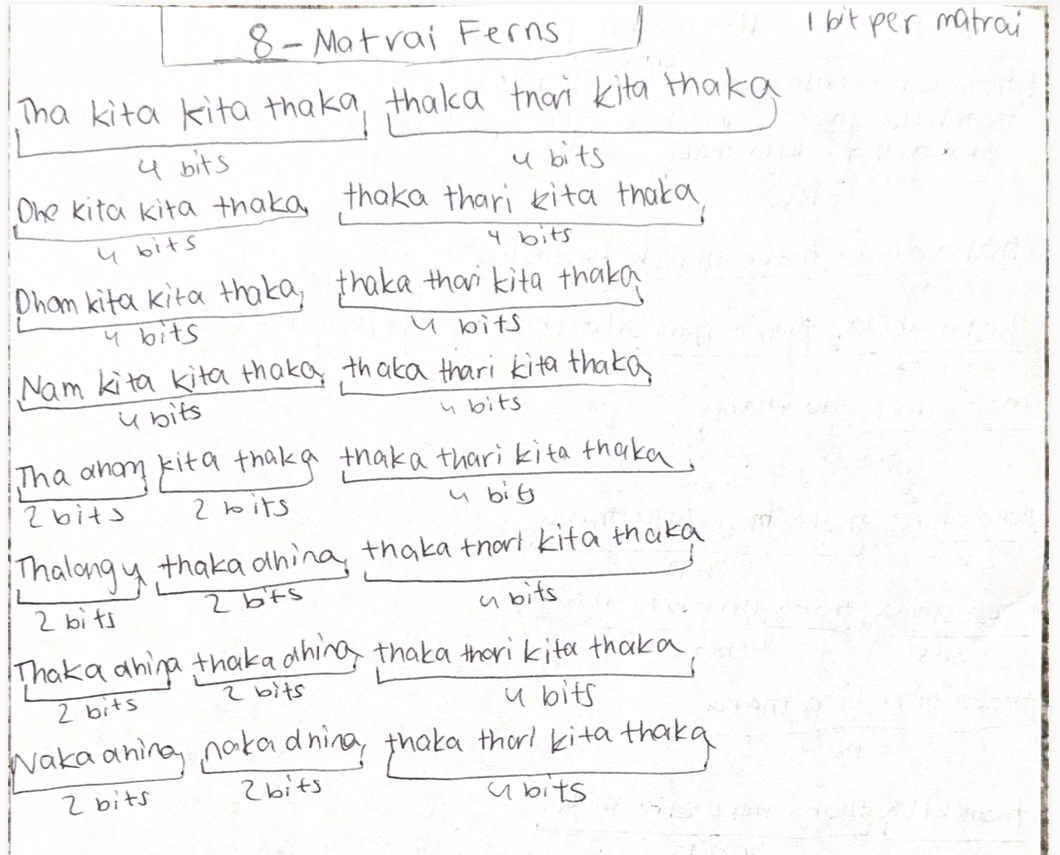 8 - Matrai Ferns
1 bit per matrai
Tha kita kita thaka thaka thari kita thaka
4 bits 4 bits
Dhe kita kita thaka thaka thari kita thaka
4 bits 4 bits
Dham kita kita thaka thaka thari kita thaka
4 bits 4 bits
Nam kita kita thaka thaka thari kita thaka
4 bits 4 bits
Tha dhom kita thaka thaka thari kita thaka
2 bits 2 bits 4 bits
Thalangu thaka dhina thaka thari kita thaka
2 bits 2 bits 4 bits
Thaka dhina thaka dhina thaka thari kita thaka
2 bits 2 bits 4 bits
Naka dhina naka dhina thaka thari kita thaka
2 bits 2 bits 4 bits